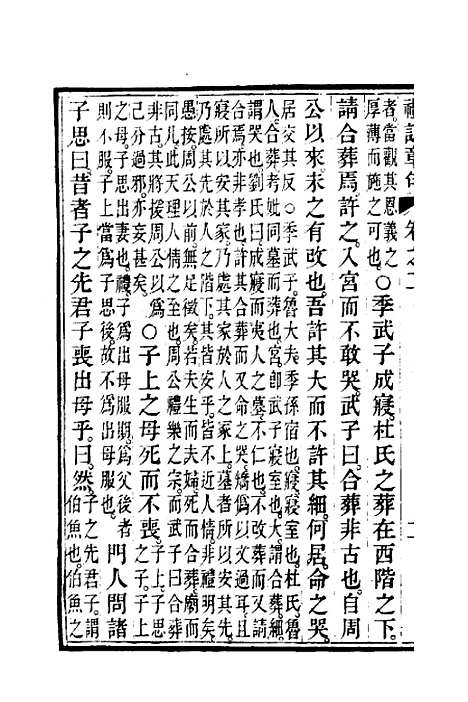 禮記章句 卷之二 二
者當觀其恩義之
厚薄而施之可也○季武子成寢杜氏之葬在西階之下
請合葬焉許之入宮而不敢哭武子曰合葬非古也自周
公以來未之有改也吾許其大而不許其細何居命之哭
居交其反○季武子魯大夫季孫宿也寢寢室也杜氏魯
人合葬考妣同墓而葬也宮卽武子寢室也大謂合葬細
謂哭也劉氏曰成寢而夷人之墓不仁也不改葬而又請
合焉亦非孝也許其合葬而又命之哭矯僞以文過且
寢所以安其家乃處其家於人之冢上墓者所以安其先
乃處其先於人之階下其皆安乎皆不近人情非禮明矣
愚按周公以前無足徵矣若夫生而夫婦死而合葬廟而
同几此天理人情之至也周公禮樂之宗而武子合葬
非古其將援周公以爲
己分過邪亦妄甚矣○子上之母死而不喪子上子思
之子子上
之母子思出妻也禮子爲出母服期爲父後者
則不服子上當爲子思後故不爲出母服也門人問諸
子思曰昔者子之先君子喪出母乎曰然子之先君子謂
伯魚也伯魚之